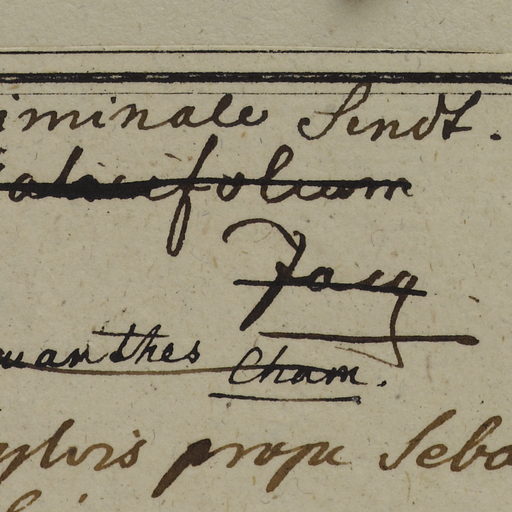 iminale Sendt.
salicifolium
Jacq
uanthes Cham.
sylvis prope Seba